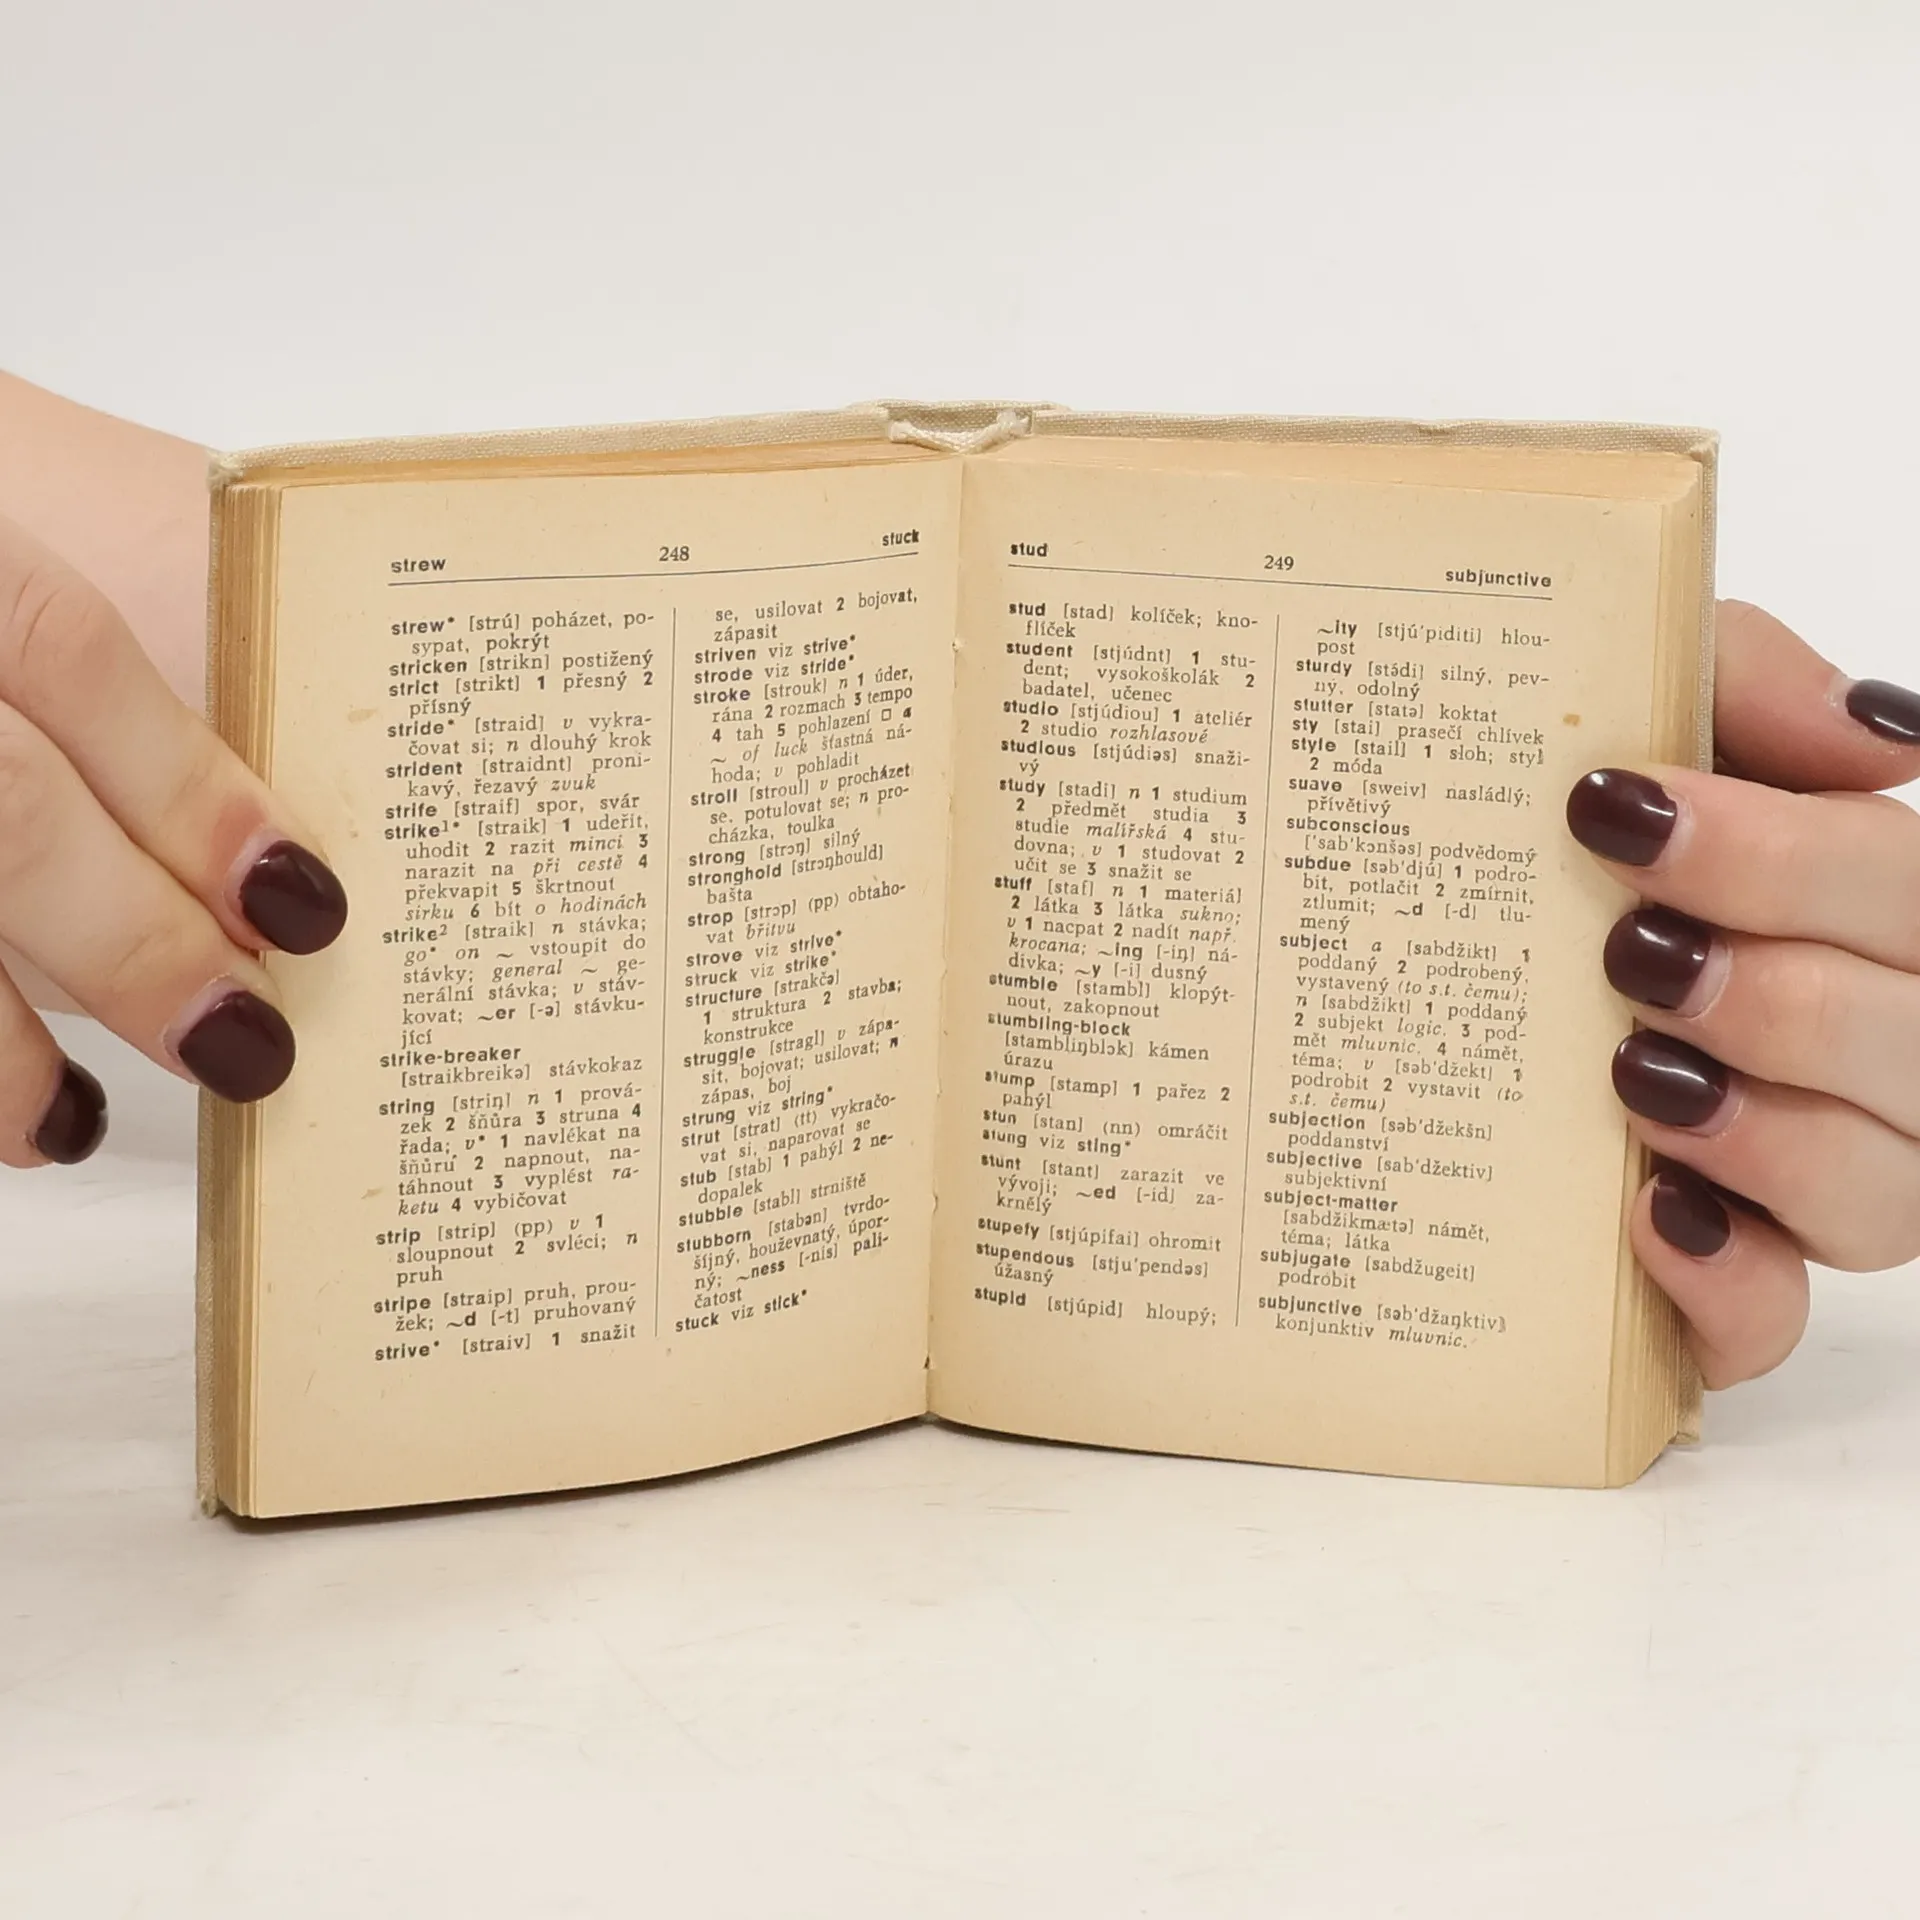 strew 248 stuck
strew* [strú] poházet, po-
sypat, pokrýt
stricken [strikn] postižený
strict [strikt] 1 přesný 2
přísný
stride* [straid] v vykra-
čovat si; n dlouhý krok
strident [straidnt] proni-
kavý, řezavý zvuk
strife [straif] spor, svár
strike¹* [straik] 1 udeřit,
uhodit 2 razit minci 3
narazit na při cestě 4
překvapit 5 škrtnout
sirku 6 bít o hodinách
strike² [straik] n stávka;
go* on ~ vstoupit do
stávky; general ~ ge-
nerální stávka; v stáv-
kovat; ~er [-ə] stávku-
jící
strike-breaker
[straikbreikə] stávkokaz
string [striŋ] n 1 prová-
zek 2 šňůra 3 struna 4
řada; v* 1 navlékat na
šňůru 2 napnout, na-
táhnout 3 vyplést ra-
ketu 4 vybičovat
strip [strip] (pp) v 1
sloupnout 2 svléci; n
pruh
stripe [straip] pruh, prou-
žek; ~d [-t] pruhovaný
strive* [straiv] 1 snažit
se, usilovat 2 bojovat,
zápasit
striven viz strive*
strode viz stride*
stroke [strouk] n 1 úder,
rána 2 rozmach 3 tempo
4 tah 5 pohlazení □ a
~ of luck šťastná ná-
hoda; v pohladit
stroll [stroul] v procházet
se, potulovat se; n pro-
cházka, toulka
strong [strɔŋ] silný
stronghold [strɔŋhould]
bašta
strop [strɔp] (pp) obtaho-
vat břitvu
strove viz strive*
struck viz strike*
structure [strakčə]
1 struktura 2 stavba;
konstrukce
struggle [stragl] v zápa-
sit, bojovat; usilovat; n
zápas, boj
strung viz string*
strut [strat] (tt) vykračo-
vat si, naparovat se
stub [stab] 1 pahýl 2 ne-
dopalek
stubble [stabl] strniště
stubborn [stabən] tvrdo-
šíjný, houževnatý, úpor-
ný; ~ness [-nis] pali-
čatost
stuck viz stick*
stud 249 subjunctive
stud [stad] kolíček; kno-
flíček
student [stjúdnt] 1 stu-
dent; vysokoškolák 2
badatel, učenec
studio [stjúdiou] 1 ateliér
2 studio rozhlasové
studious [stjúdiəs] snaži-
vý
study [stadi] n 1 studium
2 předmět studia 3
studie malířská 4 stu-
dovna; v 1 studovat 2
učit se 3 snažit se
stuff [staf] n 1 materiál
2 látka 3 látka sukno;
v 1 nacpat 2 nadít např.
krocana; ~ing [-iŋ] ná-
divka; ~y [-i] dusný
stumble [stambl] klopýt-
nout, zakopnout
stumbling-block
[stambliŋblɔk] kámen
úrazu
stump [stamp] 1 pařez 2
pahýl
stun [stan] (nn) omráčit
stung viz sting*
stunt [stant] zarazit ve
vývoji; ~ed [-id] za-
krnělý
stupefy [stjúpifai] ohromit
stupendous [stju'pendəs]
úžasný
stupid [stjúpid] hloupý;
~ity [stjú'piditi] hlou-
post
sturdy [stədi] silný, pev-
ný, odolný
stutter [statə] koktat
sty [stai] prasečí chlívek
style [stail] 1 sloh; styl
2 móda
suave [sweiv] nasládlý;
přívětivý
subconscious
['sab'kɔnšəs] podvědomý
subdue [səb'djú] 1 podro-
bit, potlačit 2 zmírnit,
ztlumit; ~d [-d] tlu-
mený
subject a [sabdžikt] 1
poddaný 2 podrobený,
vystavený (to s.t. čemu);
n [sabdžikt] 1 poddaný
2 subjekt logic. 3 pod-
mět mluvnic. 4 námět,
téma; v [səb'džekt] 1
podrobit 2 vystavit (to
s.t. čemu)
subjection [səb'džekšn]
poddanství
subjective [sab'džektiv]
subjektivní
subject-matter
[sabdžikmætə] námět,
téma; látka
subjugate [sabdžugeit]
podrobit
subjunctive [səb'džaŋktiv]
konjunktiv mluvnic.